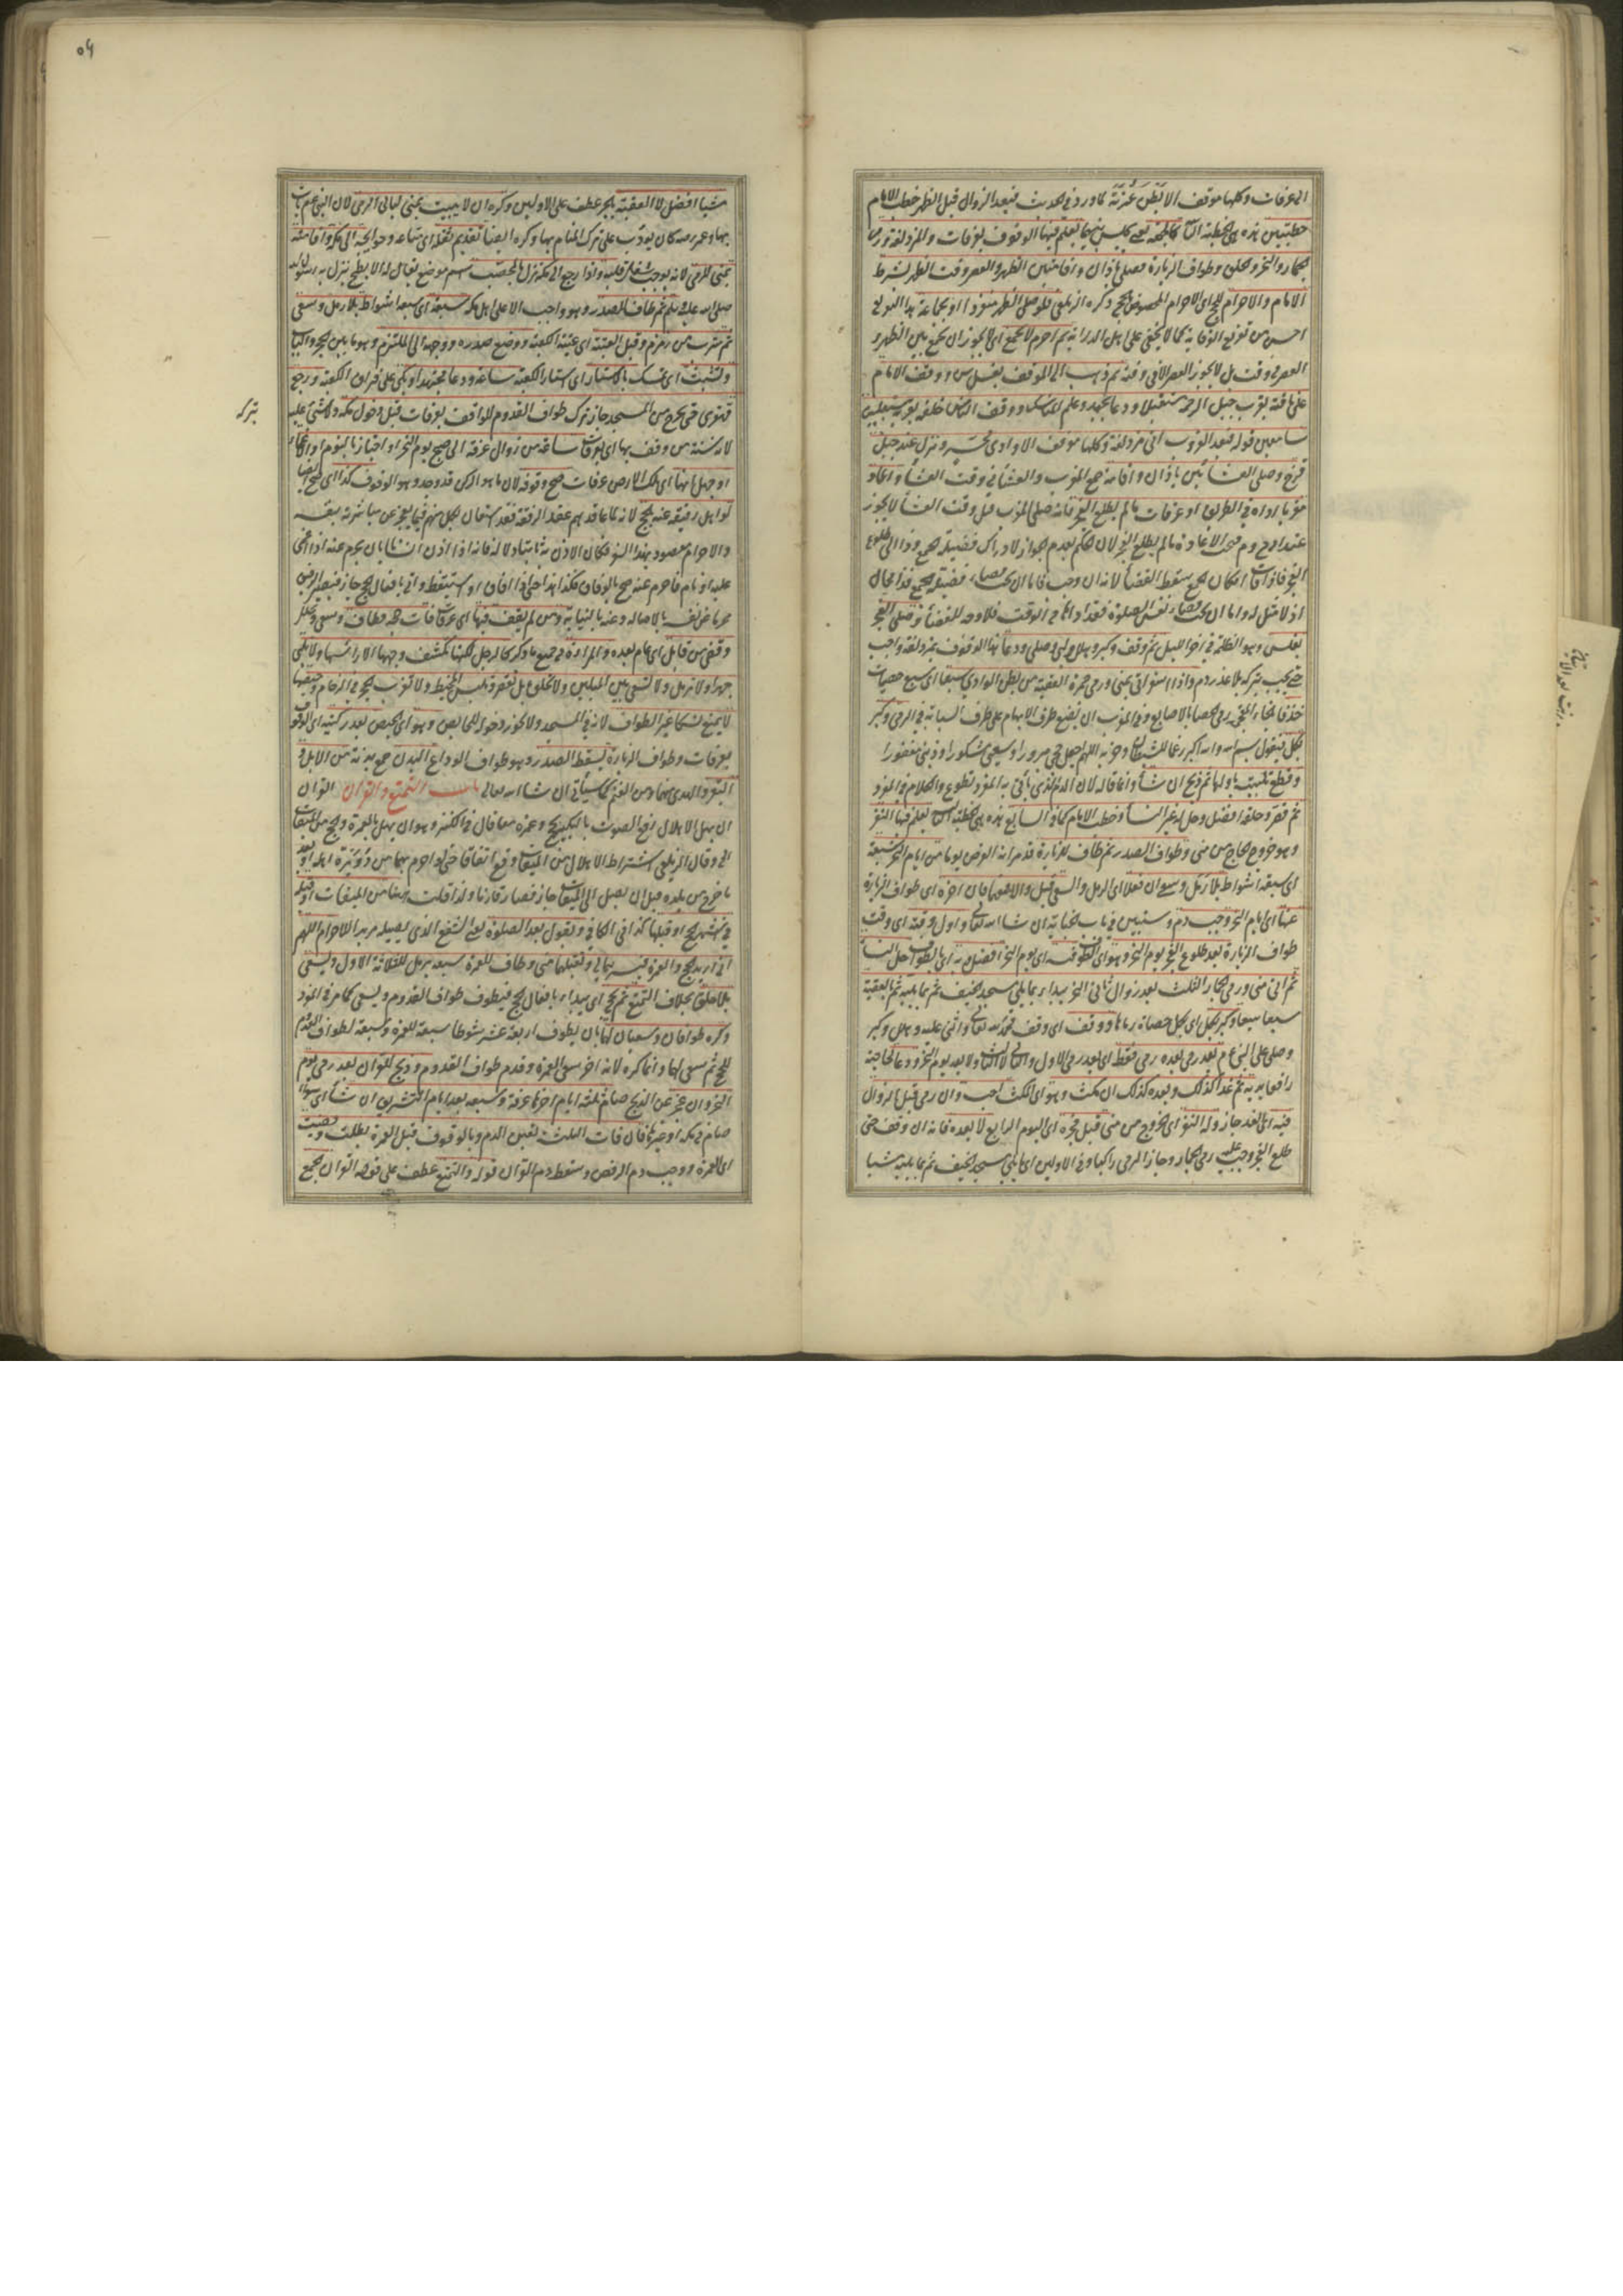 الى عرفات وكلها موقف الا بطن عرنة كما ورد في الحديث فبعد الزوال قبل الظهر خطب الامام
خطبتين هذه هي الخطبة الثانية كالجمعة يعني يجلس بينهما يعلم فيها الوقوف بعرفات والمزدلفة ورمي
الجمار والنحر والحلق وطواف الزيارة فصلى باذان واقامتين الظهر والعصر وقت الظهر بشرط
الامام والاحرام للحج اي الاحرام المخصوص بالحج ذكره الزيلعي فلو صلى الظهر منفردا او بجماعة بدا
احسن من تفريع الوقاية كما لا يخفى على اهل الدراية ثم احرم لا يجمع اي لا يجوز ان يجمع بين الظهر و
العصر في وقت بل لا يجوز العصر الا في وقته ثم ذهب الى الموقف بغسل سن ووقف الامام
على ناقته بقرب جبل الرحمة مستقبلا ودعا بجهد وعلم المناسك ووقف الناس خلفه بقربه مستقبلين
سامعين قوله فبعد الغروب اتى مزدلفة وكلها موقف الا وادي محسر ونزل عند جبل
قزح وصلى العشائين باذان واقامة جمع المغرب والعشاء في وقت العشاء واعاد
مغربا اداه في الطريق او عرفات ما لم يطلع الفجر فانه صلى المغرب قبل وقت العشاء لا يجوز
عند ابي ح وم فيجب الاعادة ما لم يطلع الفجر لان الحكم بعدم الجواز لادراك فضيلة الجمع وذا الى طلوع
الفجر فاذا فات امكان الجمع سقط القضاء لانه ان وجب فاما ان يجب قضاء فضيلة الجمع فذا محال
اذ لا مثل له واما ان يجب قضاء نفس الصلوة فقد اداها في الوقت فلا وجه للقضاء وصلى الفجر
بغلس وهو الظلمة في اخر الليل ثم وقف وكبر وهلل ولبى وصلى ودعا هذا الوقوف بمزدلفة واجب
حتى يجب بتركه بلا عذر دم واذا اسفر اتى بمنى ورمى جمرة العقبة من بطن الوادي سبعا اي سبع حصيات
خذفا بالخاء المعجمة رمي الحصا بالاصابع وفي المغرب ان يضع طرف الابهام على طرف السبابة في الرمي وكبر
بكل فيقول بسم الله والله اكبر رغما للشيطان وحزبه اللهم اجعل حجي مبرورا وسعيي مشكورا وذنبي مغفورا
وقطع تلبيته باولها ثم ذبح ان شاء وانما قاله لان الدم الذي يأتي به المفرد تطوع والكلام في المفرد
ثم قصر وحلقه افضل وحل له غير النساء وخطب الامام كما في السابع هذه هي الخطبة الثالثة يعلم فيها النفر
وهو خروج الحاج من منى وطواف الصدر ثم طاف للزيارة قد مر انه الفرض يوما من ايام النحر سبعة
اي سبعة اشواط بلا رمل وسعي ان فعلا اي الرمل والسعي قبل والا فعلهما فان اخره اي طواف الزيارة
عنها اي ايام النحر وجب دم وسنبين في باب الجناية ان شاء الله تعالى واول وقته اي وقت
طواف الزيارة بعد طلوع الفجر يوم النحر وهو اي الطواف فيه اي يوم النحر افضل وبه اي بالطواف حل النساء
ثم اتى منى ورمى الجمار الثلث بعد زوال ثاني النحر يبداء بما يلي مسجد الخيف ثم بما يليه ثم بالعقبة
سبعا سبعا وكبر بكل اي بكل حصاة رماها ووقف اي وقف فحمد الله تعالى واثنى عليه وهلل وكبر
وصلى على النبي عم بعد رمي بعده رمي فقط اي بعد رمي الاول والثاني لا الثالث ولا بعد يوم النحر ودعا لحاجته
رافعا يديه ثم غدا كذلك وبعده كذلك ان مكث وهو اي المكث احب وان رمى قبل الزوال
فيه اي الغد جاز وله النفر اي الخروج من منى قبل فجره اي اليوم الرابع لا بعده فانه ان وقف حتى
طلع الفجر وجب عليه رمي الجمار وجاز الرمي راكبا وفي الاولين اي ما يلي مسجد الخيف ثم بما يليه مشيا
مشيا
٥٤
مشيا افضل لا العقبة بالجر عطف على الاولين وكره ان لا يبيت بمنى ليالي الرمي لان النبي عم بات
بها وعمر رضه كان يؤدب على ترك المقام بها وكره ايضا تقديم ثقله اي متاعه وحوايجه الى مكة واقامته
بمنى للرمي لانه يوجب شغل قلبه واذا رجع الى مكة نزل بالمحصب اسم موضع يقال له الابطح نزل به رسول الله
صلى الله عليه وسلم ثم طاف للصدر وهو واجب الا على اهل مكة سبعة اي سبعة اشواط بلا رمل وسعي
ثم شرب من زمزم وقبل العتبة اي عتبة الكعبة ووضع صدره ووجهه الى الملتزم وهو ما بين الحجر والباب
وتشبث اي تمسك بالاستار اي استار الكعبة ساعة ودعا مجتهدا وبكى على فراق الكعبة ورجع
قهقرى حتى يخرج من المسجد جاز ترك طواف القدوم للواقف بعرفات قبل دخول مكة ولا شيء عليه
بتركه
لانه سنة من وقف بها اي بعرفات ساعة من زوال عرفة الى صبح يوم النحر او اجتاز نائما او اغماء
او جهل انها اي تلك الارض عرفات صح وقوفه لان ما هو الركن قد وجد وهو الوقوف كذا اي صح ايضا
لو اهل رفيقه عنه بالحج لانه لما عاقدهم عقد الرفقة فقد استعان بكل منهم فيما يعجز عن مباشرته بنفسه
والاحرام مقصود بهذا السفر فكان الاذن به ثابتا دلالة فانه اذا اذن انسانا بان يحرم عنه اذا اغمي
عليه او نام فاحرم عنه صح بالوفاق فكذا هذا حتى اذا افاق او استيقظ واتى بافعال الحج جاز فيصير الرفيق
محرما عن نفسه بالاصالة وعنه بالنيابة ومن لم يقف فيها اي عرفات فات حجه فطاف وسعى وتحلل
وقضى من قابل اي عام بعده والمرأة في جميع ما ذكر كالرجل لكنها تكشف وجهها لا رأسها ولا تلبي
جهرا ولا ترمل ولا تسعى بين الميلين ولا تحلق بل تقصر وتلبس المخيط ولا تقرب الحجر في الزحام وحيضها
لا يمنع نسكا غير الطواف لانه في المسجد ولا يجوز دخوله للحائض وهو اي الحيض بعد ركنيه اي الوقوف
بعرفات وطواف الزيارة يسقط الصدر وهو طواف الوداع البدن جمع بدنة من الابل و
البقر والهدي منهما ومن الغنم كما سيأتي ان شاء الله تعالى باب التمتع والقران القران
ان يهل الاهلال رفع الصوت بالتلبية بحج وعمرة معا قال في الكنز وهو ان يهل بالعمرة والحج من الميقات
الخ وقال الزيلعي اشتراط الاهلال من الميقات وقع اتفاقا حتى لو احرم بهما من دويرة اهله او بعد
ما خرج من بلده قبل ان يصل الى الميقات جاز فصار قارنا ولذا قلت هنا من الميقات او قبله
في اشهر الحج او قبلها كذا في الكافي ويقول بعد الصلوة يعني الشفع الذي يصليه مريد الاحرام اللهم
اني اريد الحج والعمرة فيسرهما لي وتقبلهما مني وطاف للعمرة سبعة يرمل للثلاثة الاول ويسعى
بلا حلق بخلاف التمتع ثم يحج اي يبداء بافعال الحج فيطوف طواف القدوم ويسعى كما مر في المفرد
وكره طوافان وسعيان لهما بان يطوف اربعة عشر شوطا سبعة للعمرة وسبعة لطواف القدوم
للحج ثم سعى لهما وانما كره لانه اخر سعي العمرة وقدم طواف القدوم وذبح للقران بعد رمي يوم
النحر وان عجز عن الذبح صام ثلثة ايام اخرها عرفة وسبعة بعد ايام التشريق اين شاء اي سواء
صام في مكة او غيرها فان فات الثلث تعين الدم وبالوقوف قبل العمرة بطلت وقضيت
اي العمرة ووجب دم الرفض وسقط دم القران قوله والتمتع عطف على قوله القران الجمع